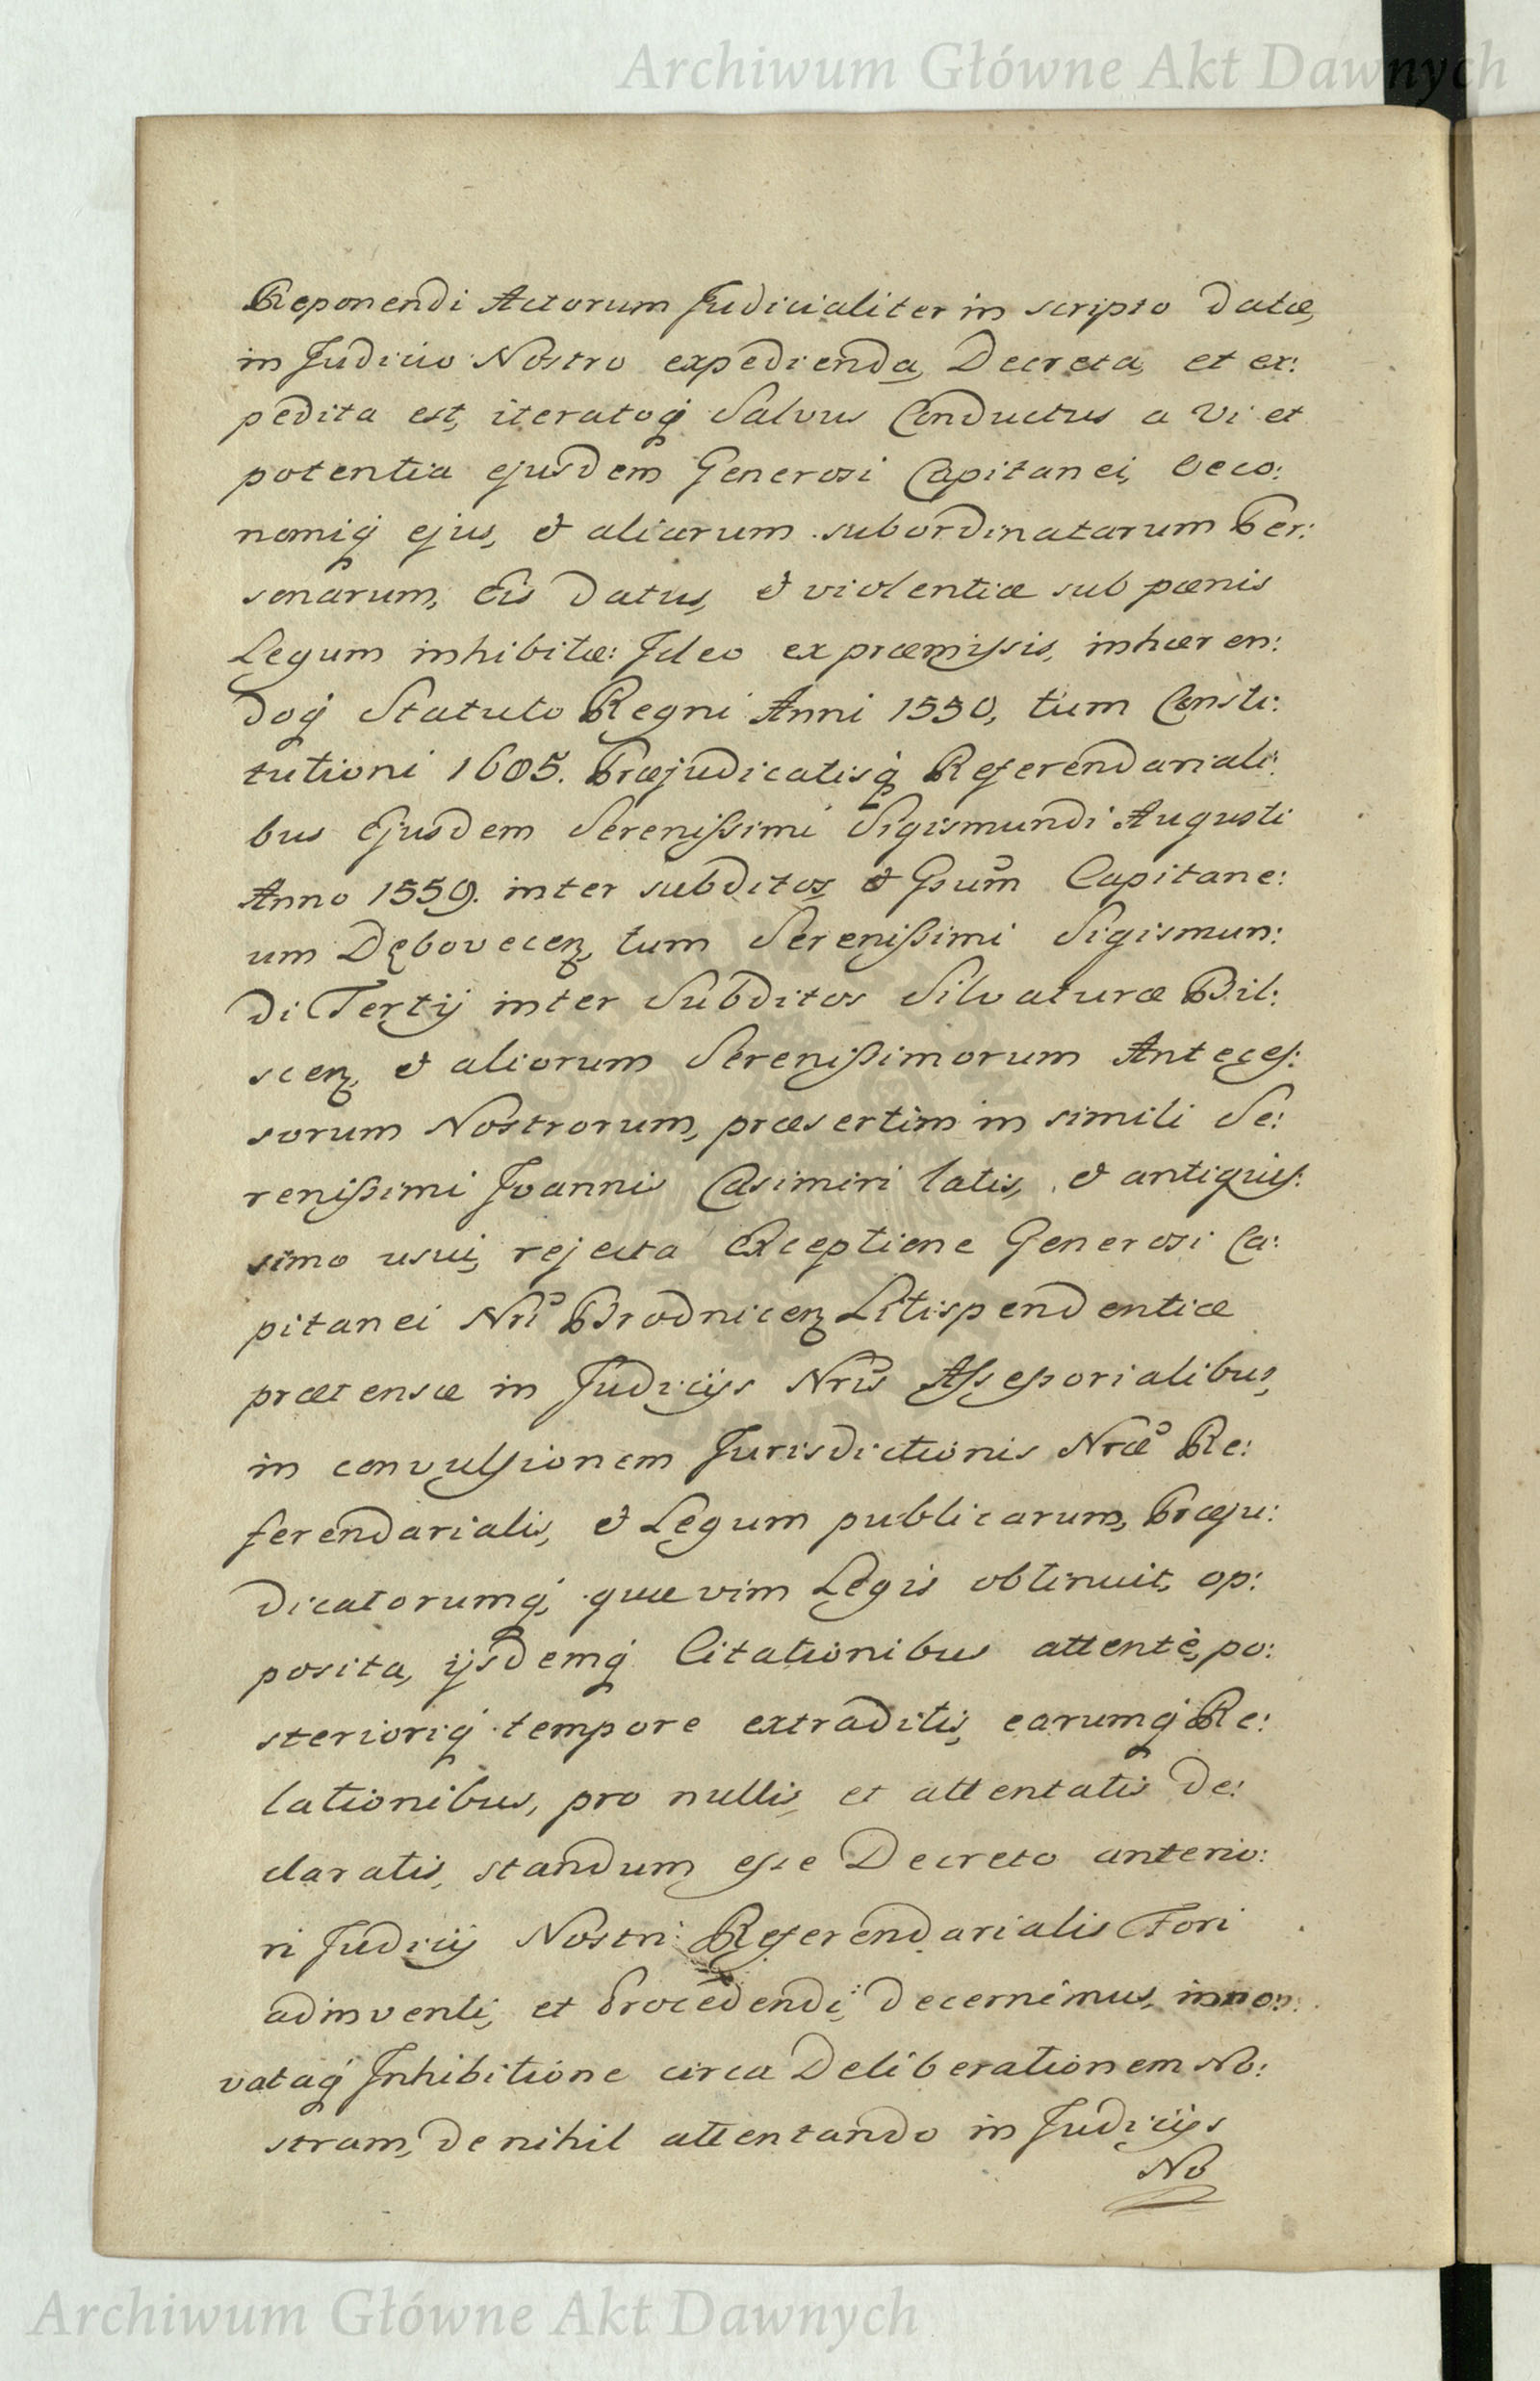 Archiwum Główne Akt Dawnych
Reponendi Actorum Judicialiter in scripto datæ,
in Judicio Nostro expedienda, Decreta, et ex:
pedita est, iteratoq́ Salvus Conductus a vi et
potentia ejusdem Generosi Capitanei, Oeco:
nomiq́ ejus, & aliarum subordinatarum Per:
sonarum, Eis datus, & violentiæ sub pœnis
Legum inhibitæ: Ideo ex præmissis, inhæren:
doq́ Statuto Regni Anni 1550, tum Consti:
tutioni 1605. Præjudicatisq́ Referendariali:
bus Ejusdem Serenissimi Sigismundi Augusti
Anno 1559. inter subditos & Gsum Capitane:
um Dębovecen, tum Serenissimi Sigismun:
di Tertij inter Subditos Silvaturæ Bil:
scen, & aliorum Serenissimorum Anteces:
sorum Nostrorum, præsertim in simili Se:
renissimi Joannis Casimiri latis, & antiquis:
simo usui, rejecta Exceptione Generosi Ca:
pitanei Nri Brodnicen Litispendentiæ
prætensæ in Judicijs Nris Assessorialibus,
in convulsionem Jurisdictionis Nræ Re:
ferendarialis, & Legum publicarum, Præju:
dicatorumq́, quæ vim Legis obtinuit, op:
posita, ijsdemq́ Citationibus attentè, po:
sterioriq́ tempore extraditis, earumq́ Re:
lationibus, pro nullis, et attentatis de:
claratis, standum esse Decreto anterio:
ri Judicij Nostri Referendarialis Fori
adinventi, et Procedendi, decernimus, inno:
vataq́ Inhibitione circa Deliberationem No:
stram, de nihil attentando in Judicijs
No
Archiwum Główne Akt Dawnych